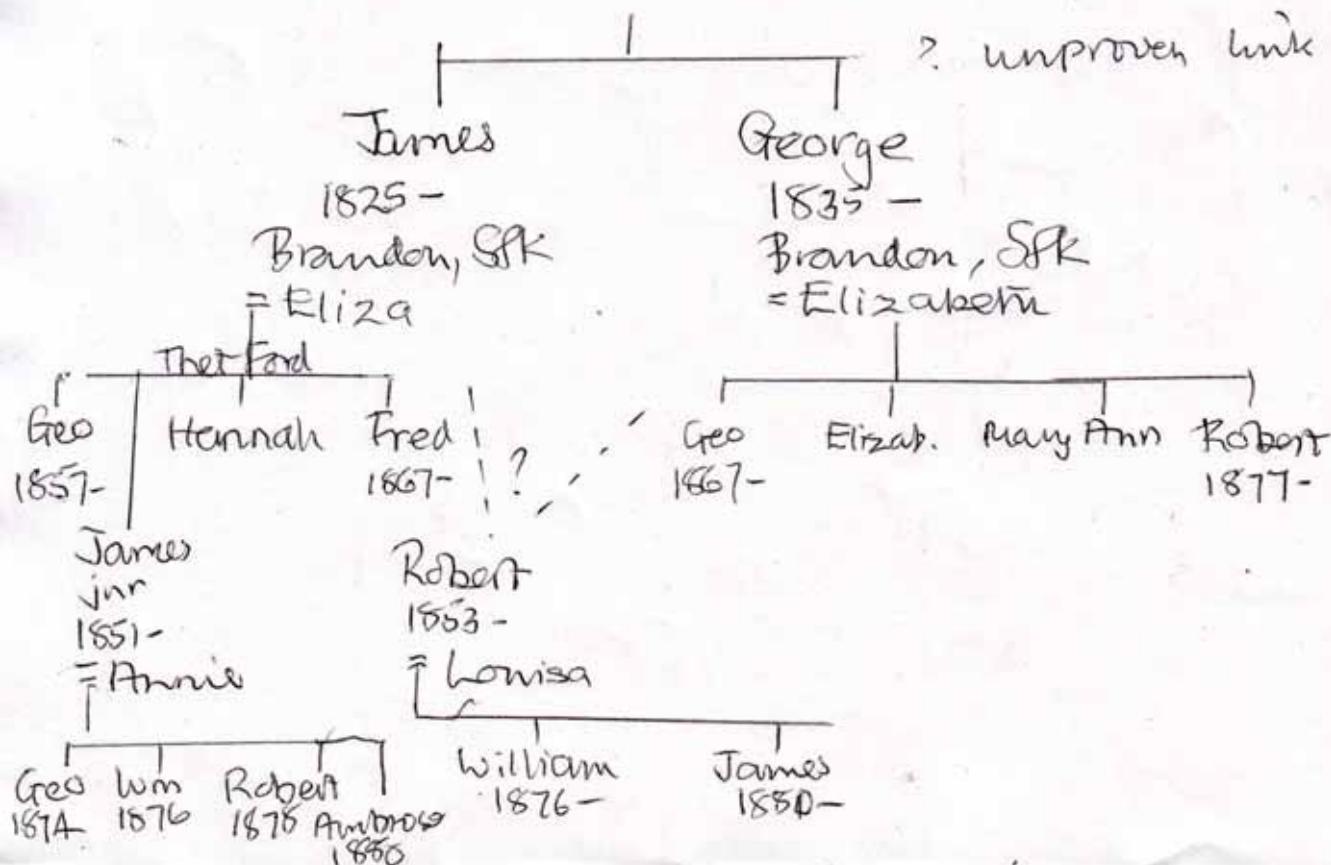 ? unproven link
James
1825 -
Brandon, Sfk
= Eliza
George
1835 -
Brandon, Sfk
= Elizabeth
Thetford
Geo
1857-
Hannah
Fred
1867-
?
Geo
1867-
Elizab.
Mary Ann
Robert
1877-
James
jnr
1851-
= Annie
Robert
1853 -
= Louisa
Geo
1874
Wm
1876
Robert
1878
Ambrose
1880
William
1876-
James
1880-